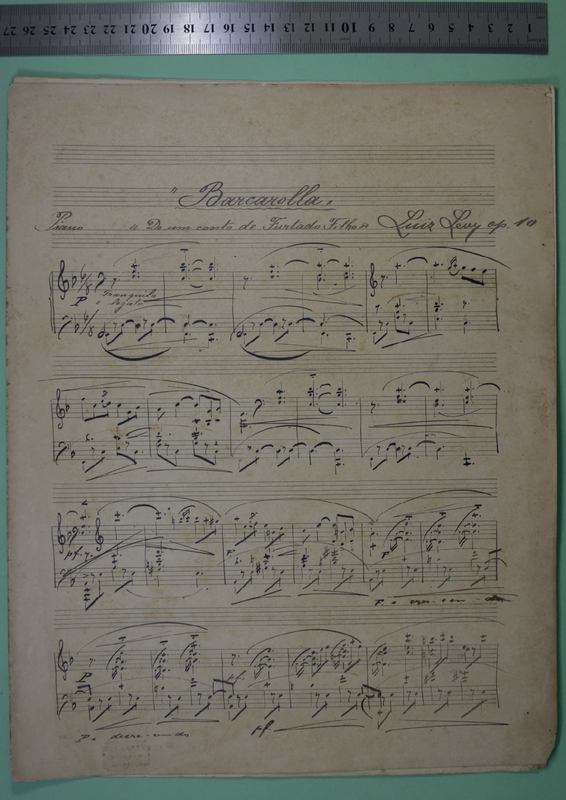 27 26 25 24 23 22 21 20 19 18 17 16 15 14 13 12 11 10 9 8 7 6 5 4 3 2 1
"Barcarolla"
Piano « De um conto de Furtado Filho » Luiz Levy op. 10
6/8
P Tranquilo
e Legato
6/8
pf
P. e
P. e decre-cen-do
pf